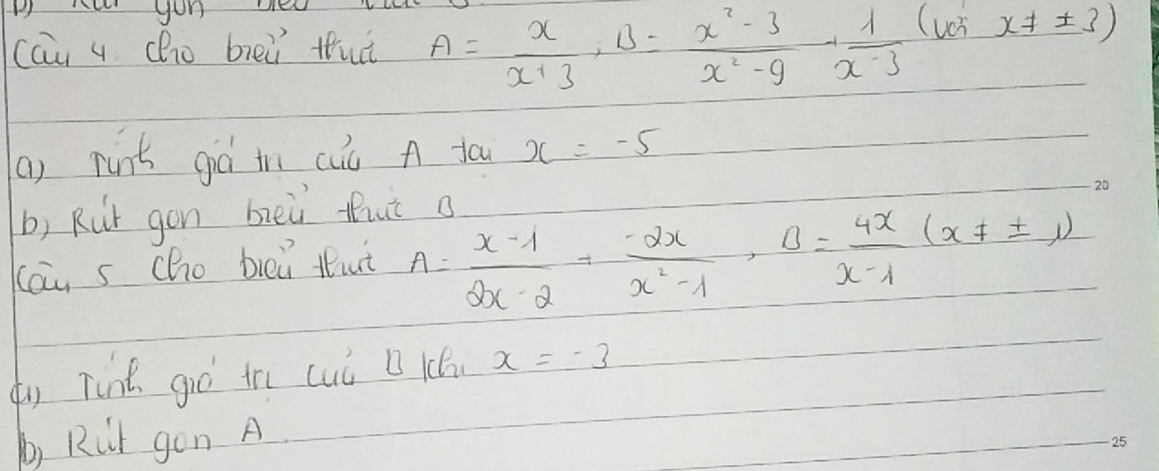 b) Rút gọn biểu
Câu 4. Cho biểu thức A = x/(x+3), B = (x² - 3)/(x² - 9) + 1/(x - 3) (với x ≠ ±3)
a) Tính giá trị của A tại x = -5
b) Rút gọn biểu thức B
20
Câu 5 Cho biểu thức A = (x - 1)/(2x - 2) + (-2x)/(x² - 1), B = 4x/(x - 1) (x ≠ ± 1)
a) Tính giá trị của B khi x = -3
b) Rút gọn A
25